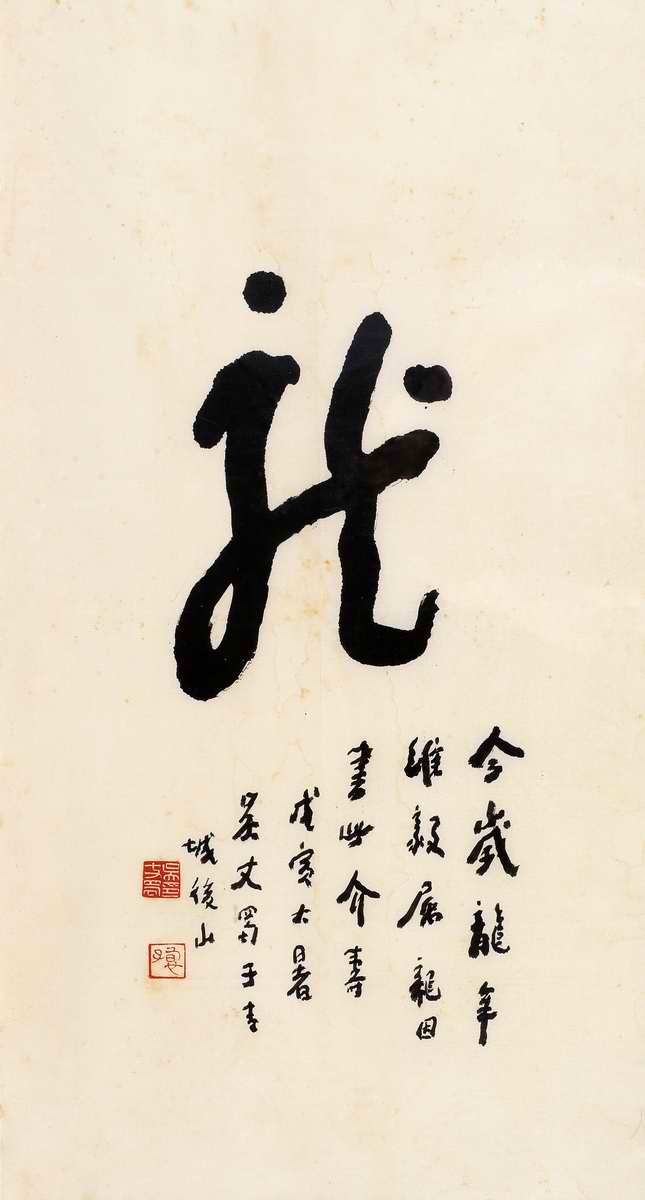 龍
今歲龍年
維毅屬龍因
書此介壽
戊辰大暑
吳丈蜀于青
城後山